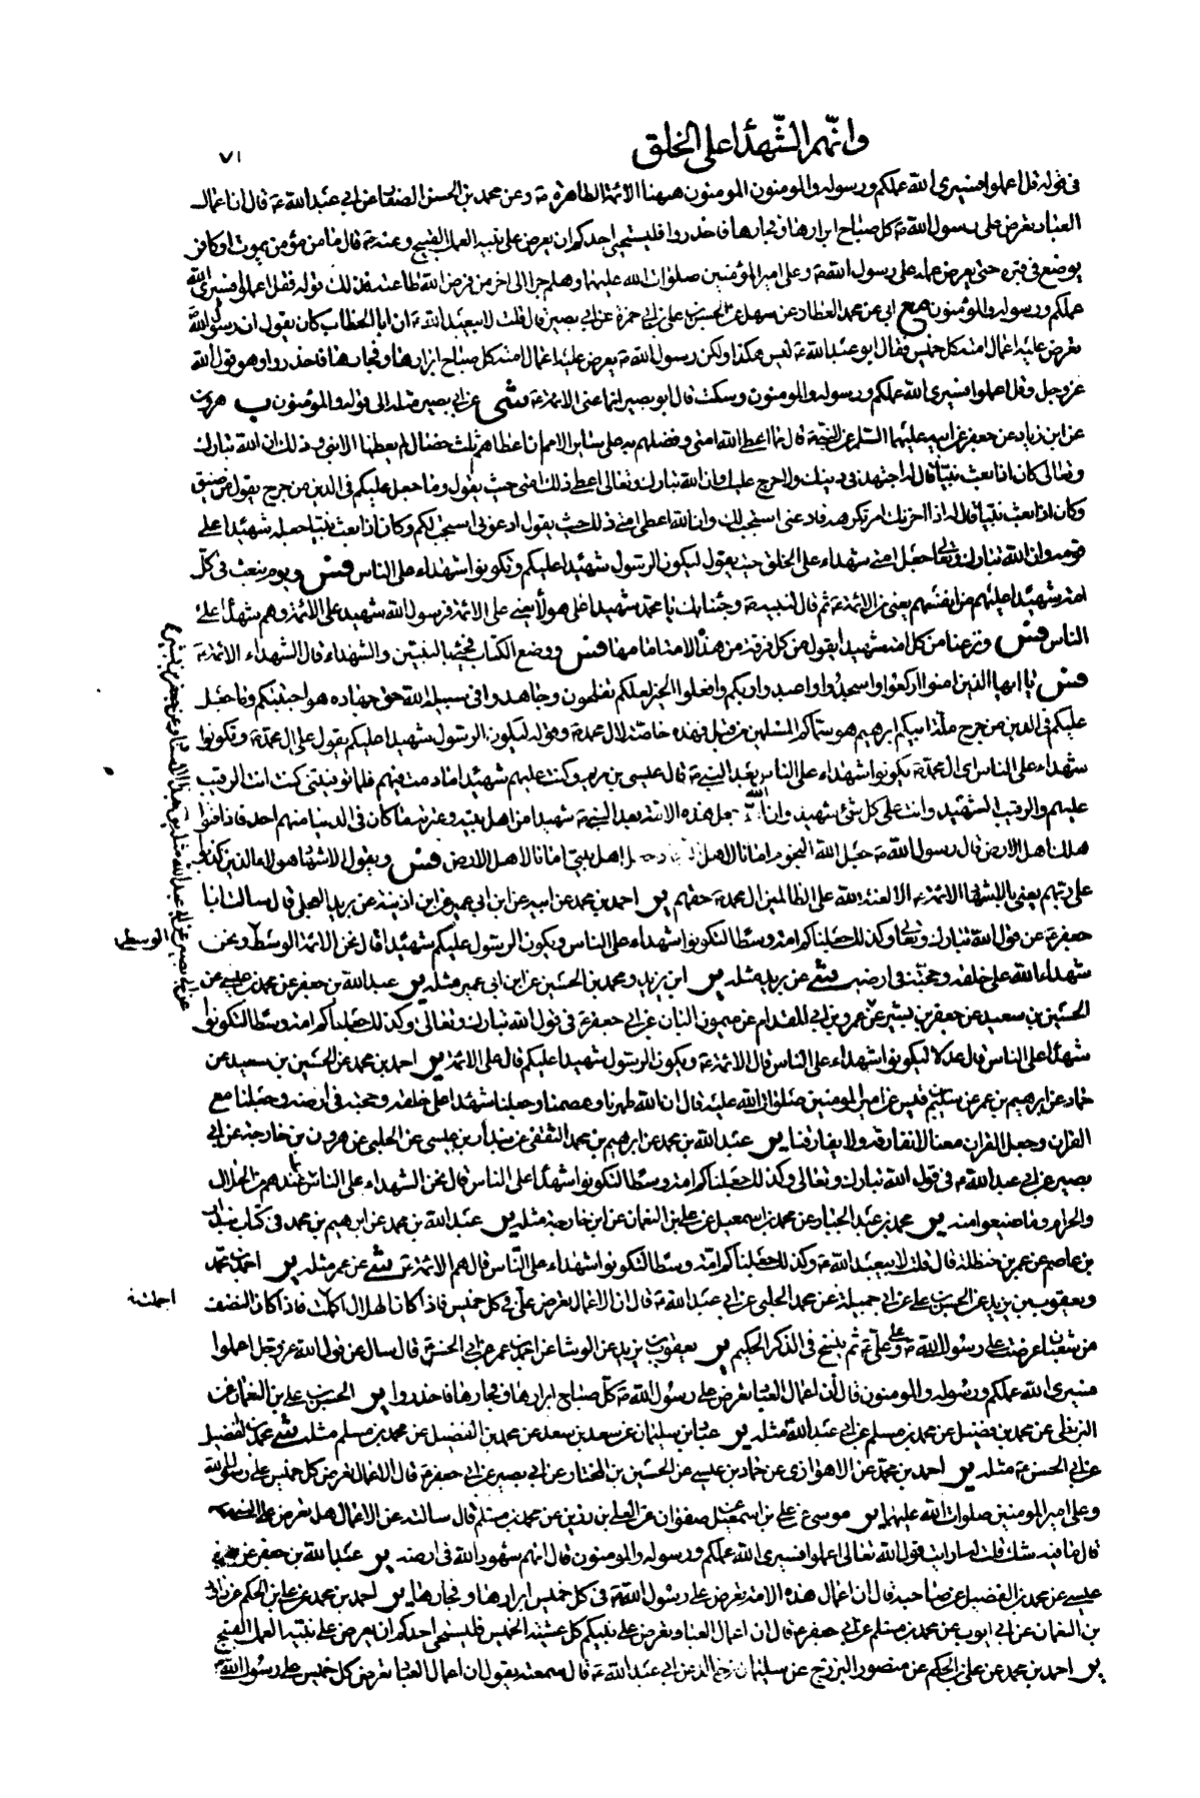 وانهم الشهداء على الخلق
٧١
في قوله قل اعملوا فسيرى الله عملكم ورسوله والمومنون المومنون ههنا الائمة الطاهرة وعن محمد بن الحسن الصفار عن ابي عبد الله ع قال ان اعمال
العباد تعرض على رسول الله ص كل صباح ابرارها وفجارها فاحذروا فليستحيي احدكم ان يعرض على نبيه العمل القبيح وعنه ع قال ما من مؤمن يموت او كافر
يوضع في قبره حتى يعرض عمله على رسول الله ص وعلى امير المؤمنين صلوات الله عليهما وهلم جرا الى اخر من فرض الله طاعته فذلك قوله فقل اعملوا فسيرى الله
عملكم ورسوله والمؤمنون مع ابي عن محمد العطار عن سهل عن علي عن ابي حمزة عن ابي بصير قال قلت لابي عبد الله ع ان ابا الخطاب كان يقول ان رسول الله
تعرض عليه اعمال امته كل خميس فقال ابو عبد الله ع ليس هكذا ولكن رسول الله ص يعرض عليه اعمال امته كل صباح ابرارها وفجارها فاحذروا وهو قول الله
عز وجل وقل اعملوا فسيرى الله عملكم ورسوله والمومنون وسكت قال ابو بصير انما عنى الائمة ع شى عن ابي بصير مثله الى قوله والمؤمنون ب هرون
عن ابن زياد عن جعفر عن ابيه عليهما السلم عن النبي ص قال مما اعطى الله امتي وفضلهم به على سائر الامم ان اعطاهم ثلث خصال لم يعطها الا نبي وذلك ان الله تبارك
وتعالى كان اذا بعث نبيا قال له اجتهد في دينك ولا حرج عليك وان الله تبارك وتعالى اعطى ذلك امتي حيث يقول وما جعل عليكم في الدين من حرج يقول من ضيق
وكان اذا بعث نبيا قال له اذا احزنك امر تكرهه فادعني استجب لك وان الله اعطى امتي ذلك حيث يقول ادعوني استجب لكم وكان اذا بعث نبيا جعله شهيدا على
قومه وان الله تبارك وتعالى جعل امتي شهداء على الخلق حيث يقول ليكون الرسول شهيدا عليكم وتكونوا شهداء على الناس فس ويوم نبعث في كل
امة شهيدا عليهم من انفسهم يعني من الائمة ع ثم قال لنبيه ص وجئنا بك يا محمد شهيدا على هولاء يعني على الائمة فرسول الله شهيد على الائمة وهم شهداء على
الناس فس ونزعنا من كل امة شهيدا يقول من كل فرقة من هذه الامة امامها فس ووضع الكتاب وجئ بالنبيين والشهداء قال الشهداء الائمة ع
فس يا ايها الذين امنوا اركعوا واسجدوا واعبدوا ربكم وافعلوا الخير لعلكم تفلحون وجاهدوا في سبيل الله حق جهاده هو اجتبيكم وما جعل
عليكم في الدين من حرج ملة ابيكم ابرهيم هو سماكم المسلمين من قبل فهذه خاصة لال محمد ع وقوله ليكون الرسول شهيدا عليكم يقول على ال محمد ع وتكونوا
شهداء على الناس اي ال محمد ع يكونوا شهداء على الناس بعد النبي ص قال عيسى بن مريم وكنت عليهم شهيدا ما دمت فيهم فلما توفيتني كنت انت الرقيب
عليهم والرقيب الشهيد وانت على كل شئ شهيد وان الله جعل هذه الائمة بعد النبي ص شهيدا من اهل بيته وعترته ما كان في الدنيا منهم احد فاذا فنوا
هلك اهل الارض قال رسول الله ص جعل الله النجوم امانا لاهل السماء وجعل اهل بيتي امانا لاهل الارض فس ويقول الاشهاد هولاء الذين كذبوا
على ربهم يعني بالاشهاد الائمة ع الا لعنة الله على الظالمين ال محمد ع حقهم ير احمد بن محمد عن ابيه عن ابن ابي عمير عن ابن اذينة عن بريد العجلي قال سالت ابا
جعفر ع عن قول الله تبارك وتعالى وكذلك جعلناكم امة وسطا لتكونوا شهداء على الناس ويكون الرسول عليكم شهيدا قال نحن الائمة الوسط ونحن
شهداء الله على خلقه وحجته في ارضه شى عن بريد مثله ير ابن يزيد ومحمد بن الحسين عن ابن ابي عمير مثله ير عبد الله بن جعفر عن محمد بن عيسى عن
الحسين بن سعيد عن جعفر بن بشير عن عمرو بن ابي المقدام عن ميمون البان عن ابي جعفر ع في قول الله تبارك وتعالى وكذلك جعلناكم امة وسطا لتكونوا
شهداء على الناس قال عدلا ليكونوا شهداء على الناس قال الائمة ع ويكون الرسول شهيدا عليكم قال على الائمة ير احمد بن محمد عن الحسين بن سعيد عن
حماد عن ابرهيم بن عمر عن سليم بن قيس عن امير المومنين صلوات الله عليه قال ان الله طهرنا وعصمنا وجعلنا شهداء على خلقه وحجته في ارضه وجعلنا مع
القران وجعل القران معنا لا نفارقه ولا يفارقنا ير عبد الله بن محمد عن ابرهيم بن محمد الثقفي عن بندار بن عيسى عن الحلبي عن هرون بن خارجة عن ابي
بصير عن ابي عبد الله ع في قول الله تبارك وتعالى وكذلك جعلناكم امة وسطا لتكونوا شهداء على الناس قال نحن الشهداء على الناس بما عندهم من الحلال
والحرام وما ضيعوا منه ير محمد بن عبد الجبار عن محمد بن اسمعيل عن علي بن النعمان عن ابن خارجة مثله ير عبد الله بن محمد عن ابرهيم بن محمد في كتاب بندار
بن عاصم عن عمر بن حنظلة قال قلت لابي عبد الله ع وكذلك جعلناكم امة وسطا لتكونوا شهداء على الناس قال هم الائمة ع شى عن عمر مثله ير احمد بن محمد
ويعقوب بن يزيد عن الحسن بن علي عن ابي جميلة عن محمد الحلبي عن ابي عبد الله ع قال ان الاعمال تعرض علي في كل خميس فاذا كان الهلال اكملت فاذا كان النصف
من شعبان عرضت على رسول الله ص وعلى علي ع ثم ينسخ في الذكر الحكيم ير يعقوب بن يزيد عن الوشا عن احمد بن عمر عن ابي الحسن ع قال سال عن قول الله عز وجل اعملوا
فسيرى الله عملكم ورسوله والمومنون قال ان اعمال العباد تعرض على رسول الله ص كل صباح ابرارها وفجارها فاحذروا ير الحسن بن علي بن النعمان عن
البزنطي عن محمد بن فضيل عن محمد بن مسلم عن ابي عبد الله مثله ير عباد بن سليمان عن سعد بن سعد عن محمد بن الفضيل عن محمد بن مسلم مثله شى محمد بن الفضيل
عن ابي الحسن ع مثله ير احمد بن محمد عن الاهوازي عن حماد بن عيسى عن الحسين بن المختار عن ابي بصير عن ابي جعفر ع قال الاعمال تعرض كل خميس على رسول الله
وعلى امير المومنين صلوات الله عليهما ير موسى عن علي بن اسمعيل عن صفوان عن العلا بن رزين عن محمد بن مسلم قال سالته عن الاعمال هل تعرض على النبي ص
قال ما فيه شك قلت له ارايت قول الله تعالى اعملوا فسيرى الله عملكم ورسوله والمومنون قال انهم شهود الله في ارضه ير عبد الله بن جعفر عن محمد بن
عيسى عن محمد بن الفضيل عن صاحبه قال ان اعمال هذه الامة تعرض على رسول الله ص في كل خميس ابرارها وفجارها ير احمد بن محمد عن علي بن الحكم عن داود
بن النعمان عن ابي ايوب عن محمد بن مسلم عن ابي جعفر ع قال ان اعمال العباد تعرض على نبيكم كل عشية الخميس فليستحي احدكم ان يعرض على نبيه العمل القبيح
ير احمد بن محمد عن علي بن الحكم عن منصور البزرج عن سليمان بن خالد عن ابي عبد الله ع قال سمعته يقول ان اعمال العباد تعرض كل خميس على رسول الله ص
الوسطى
اجملت